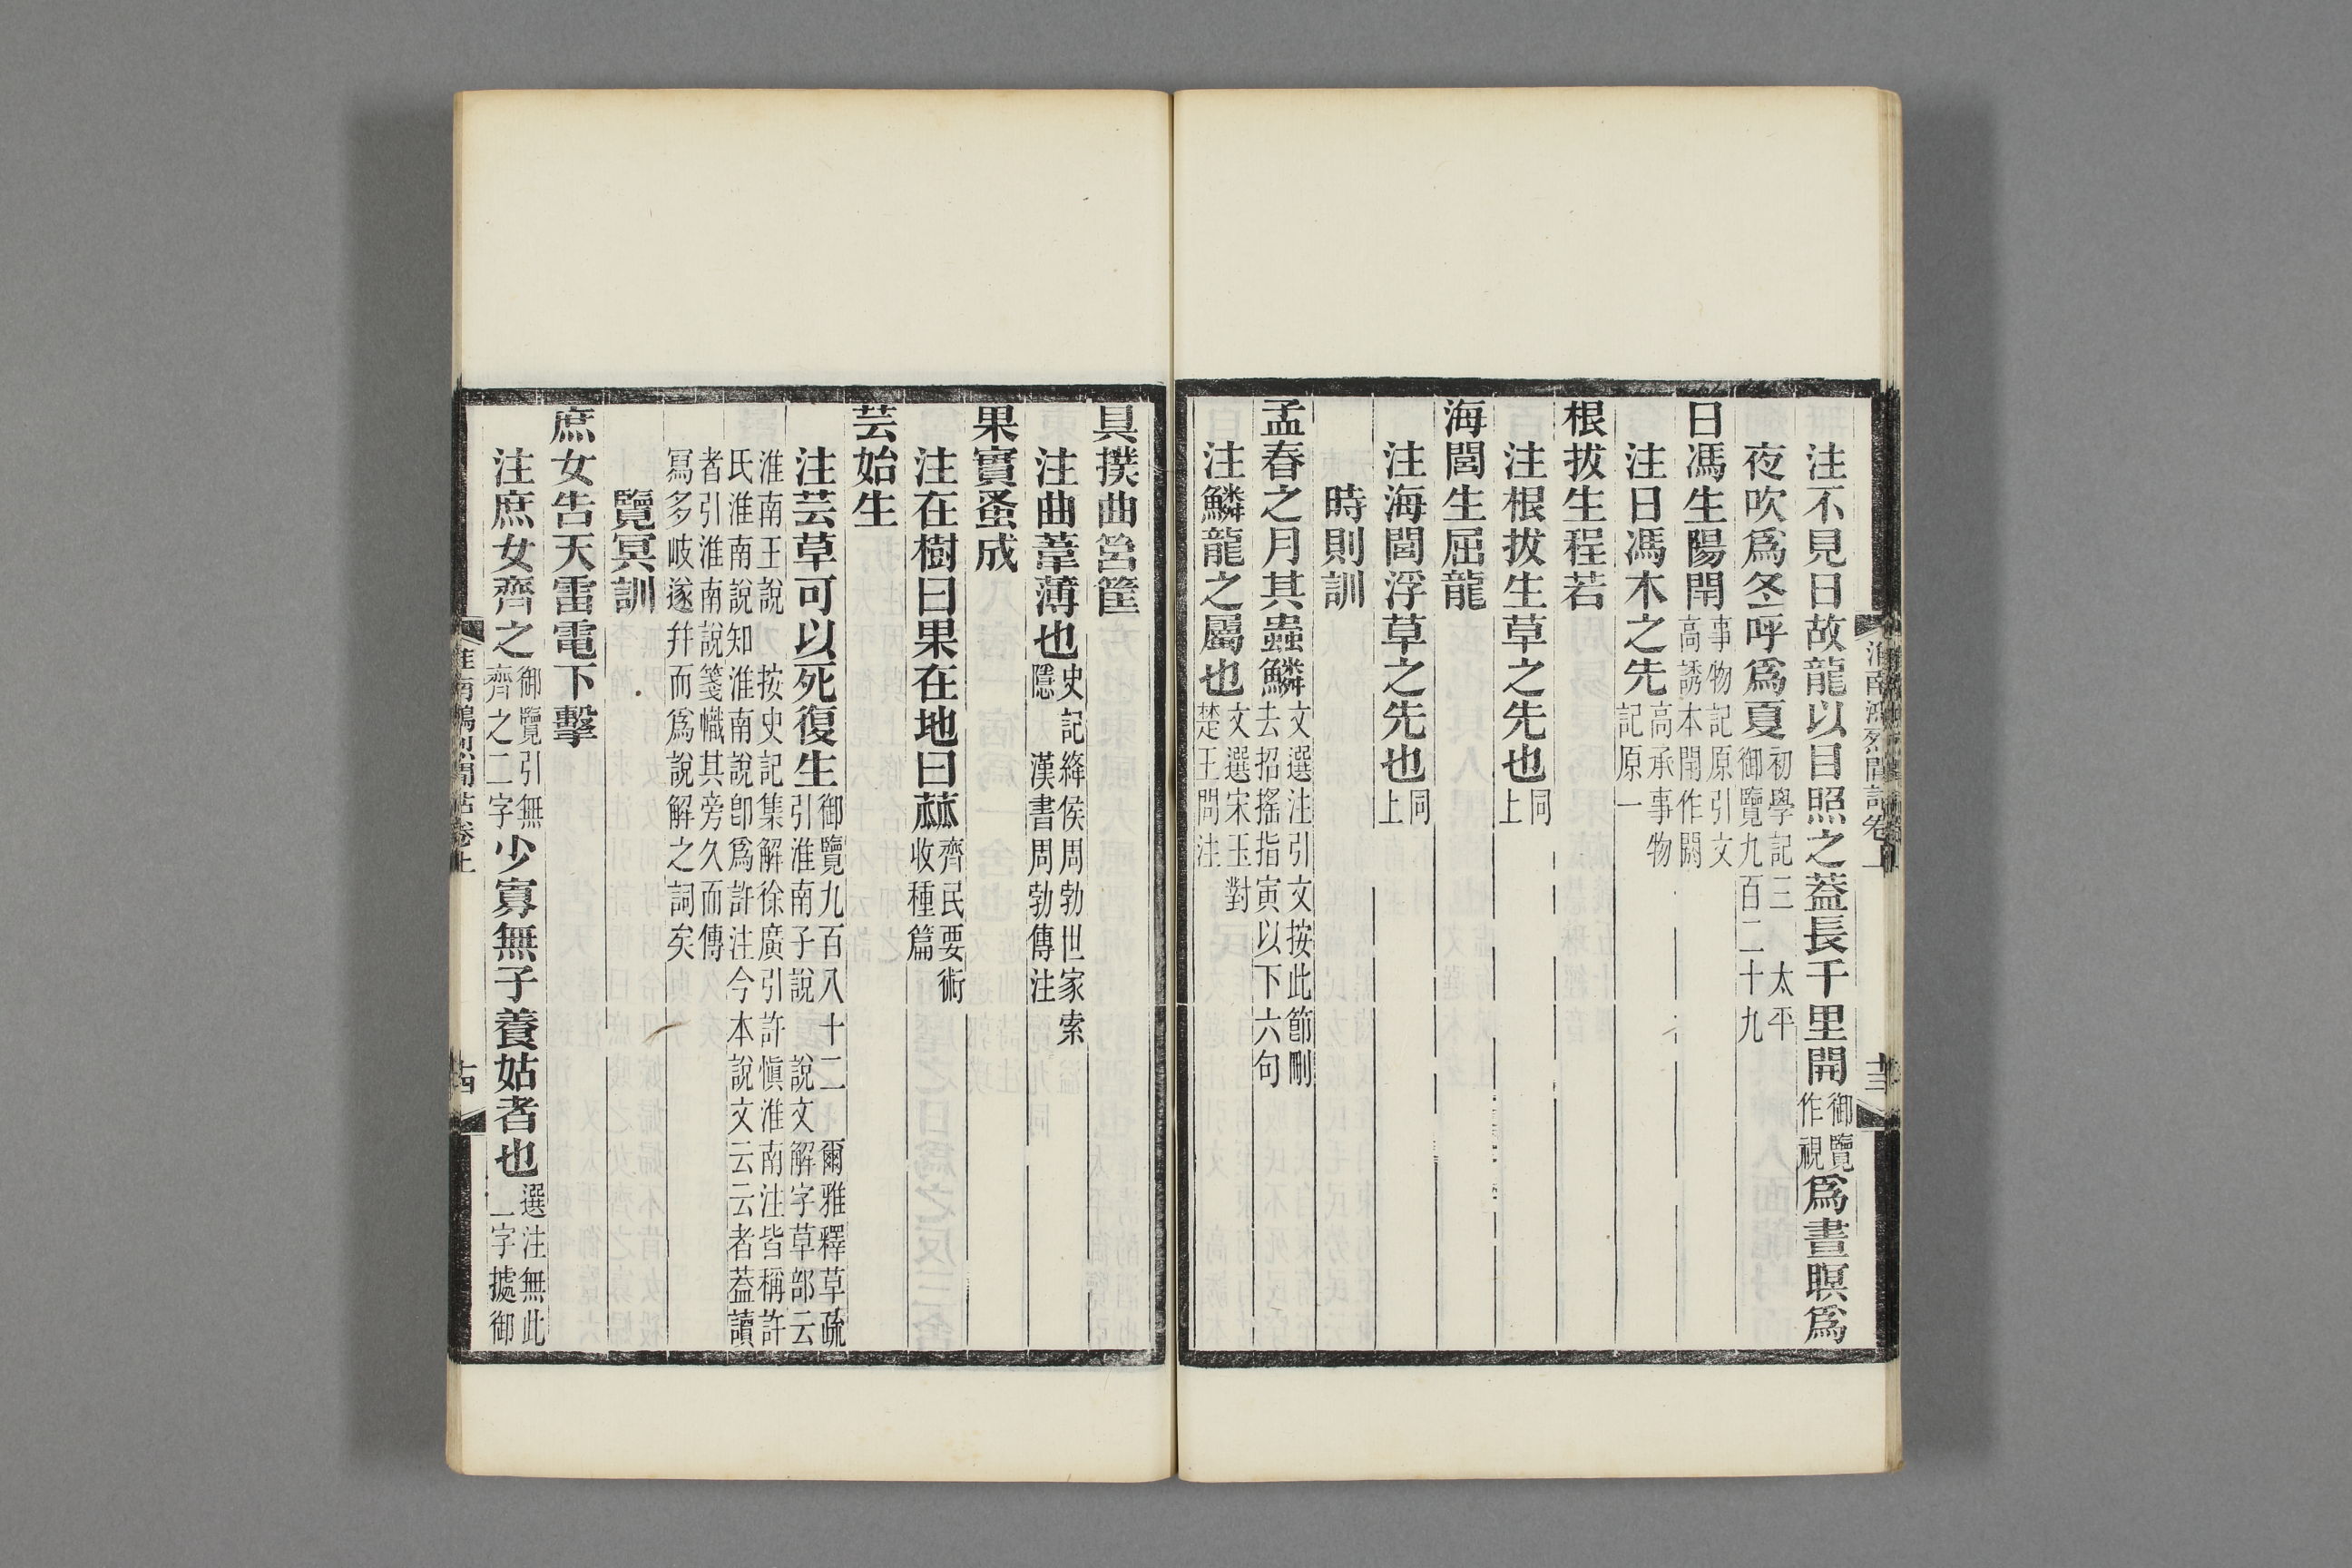 注不見日故龍以目照之蓋長千里開御覽作視爲晝瞑爲
夜吹爲冬呼爲夏初學記三 太平御覽九百二十九
日馮生陽閈事物記原引文高誘本閈作閼
注日馮木之先高承事物記原一
根拔生程若
注根拔生草之先也同上
海閭生屈龍
注海閭浮草之先也同上
時則訓
孟春之月其蟲鱗文選注引文按此節刪去招搖指寅以下六句
注鱗龍之屬也文選宋玉對楚王問注
淮南鴻烈閒詁卷上
十三
具撲曲筥筐
注曲葦薄也史記絳侯周勃世家索隱 漢書周勃傳注
果實蚤成
注在樹曰果在地曰蓏齊民要術收種篇
芸始生
注芸草可以死復生御覽九百八十二 爾雅釋草疏引淮南子說 說文解字草部云
淮南王說 按史記集解徐廣引許愼淮南注皆稱許氏淮南說知淮南說卽爲許注今本說文云云者蓋讀
者引淮南說箋幟其旁久而傳寫多岐遂幷而爲說解之詞矣
覽冥訓
庶女告天雷電下擊
注庶女齊之御覽引無齊之二字少寡無子養姑者也選注無此一字據御
淮南鴻烈閒詁卷上
十四